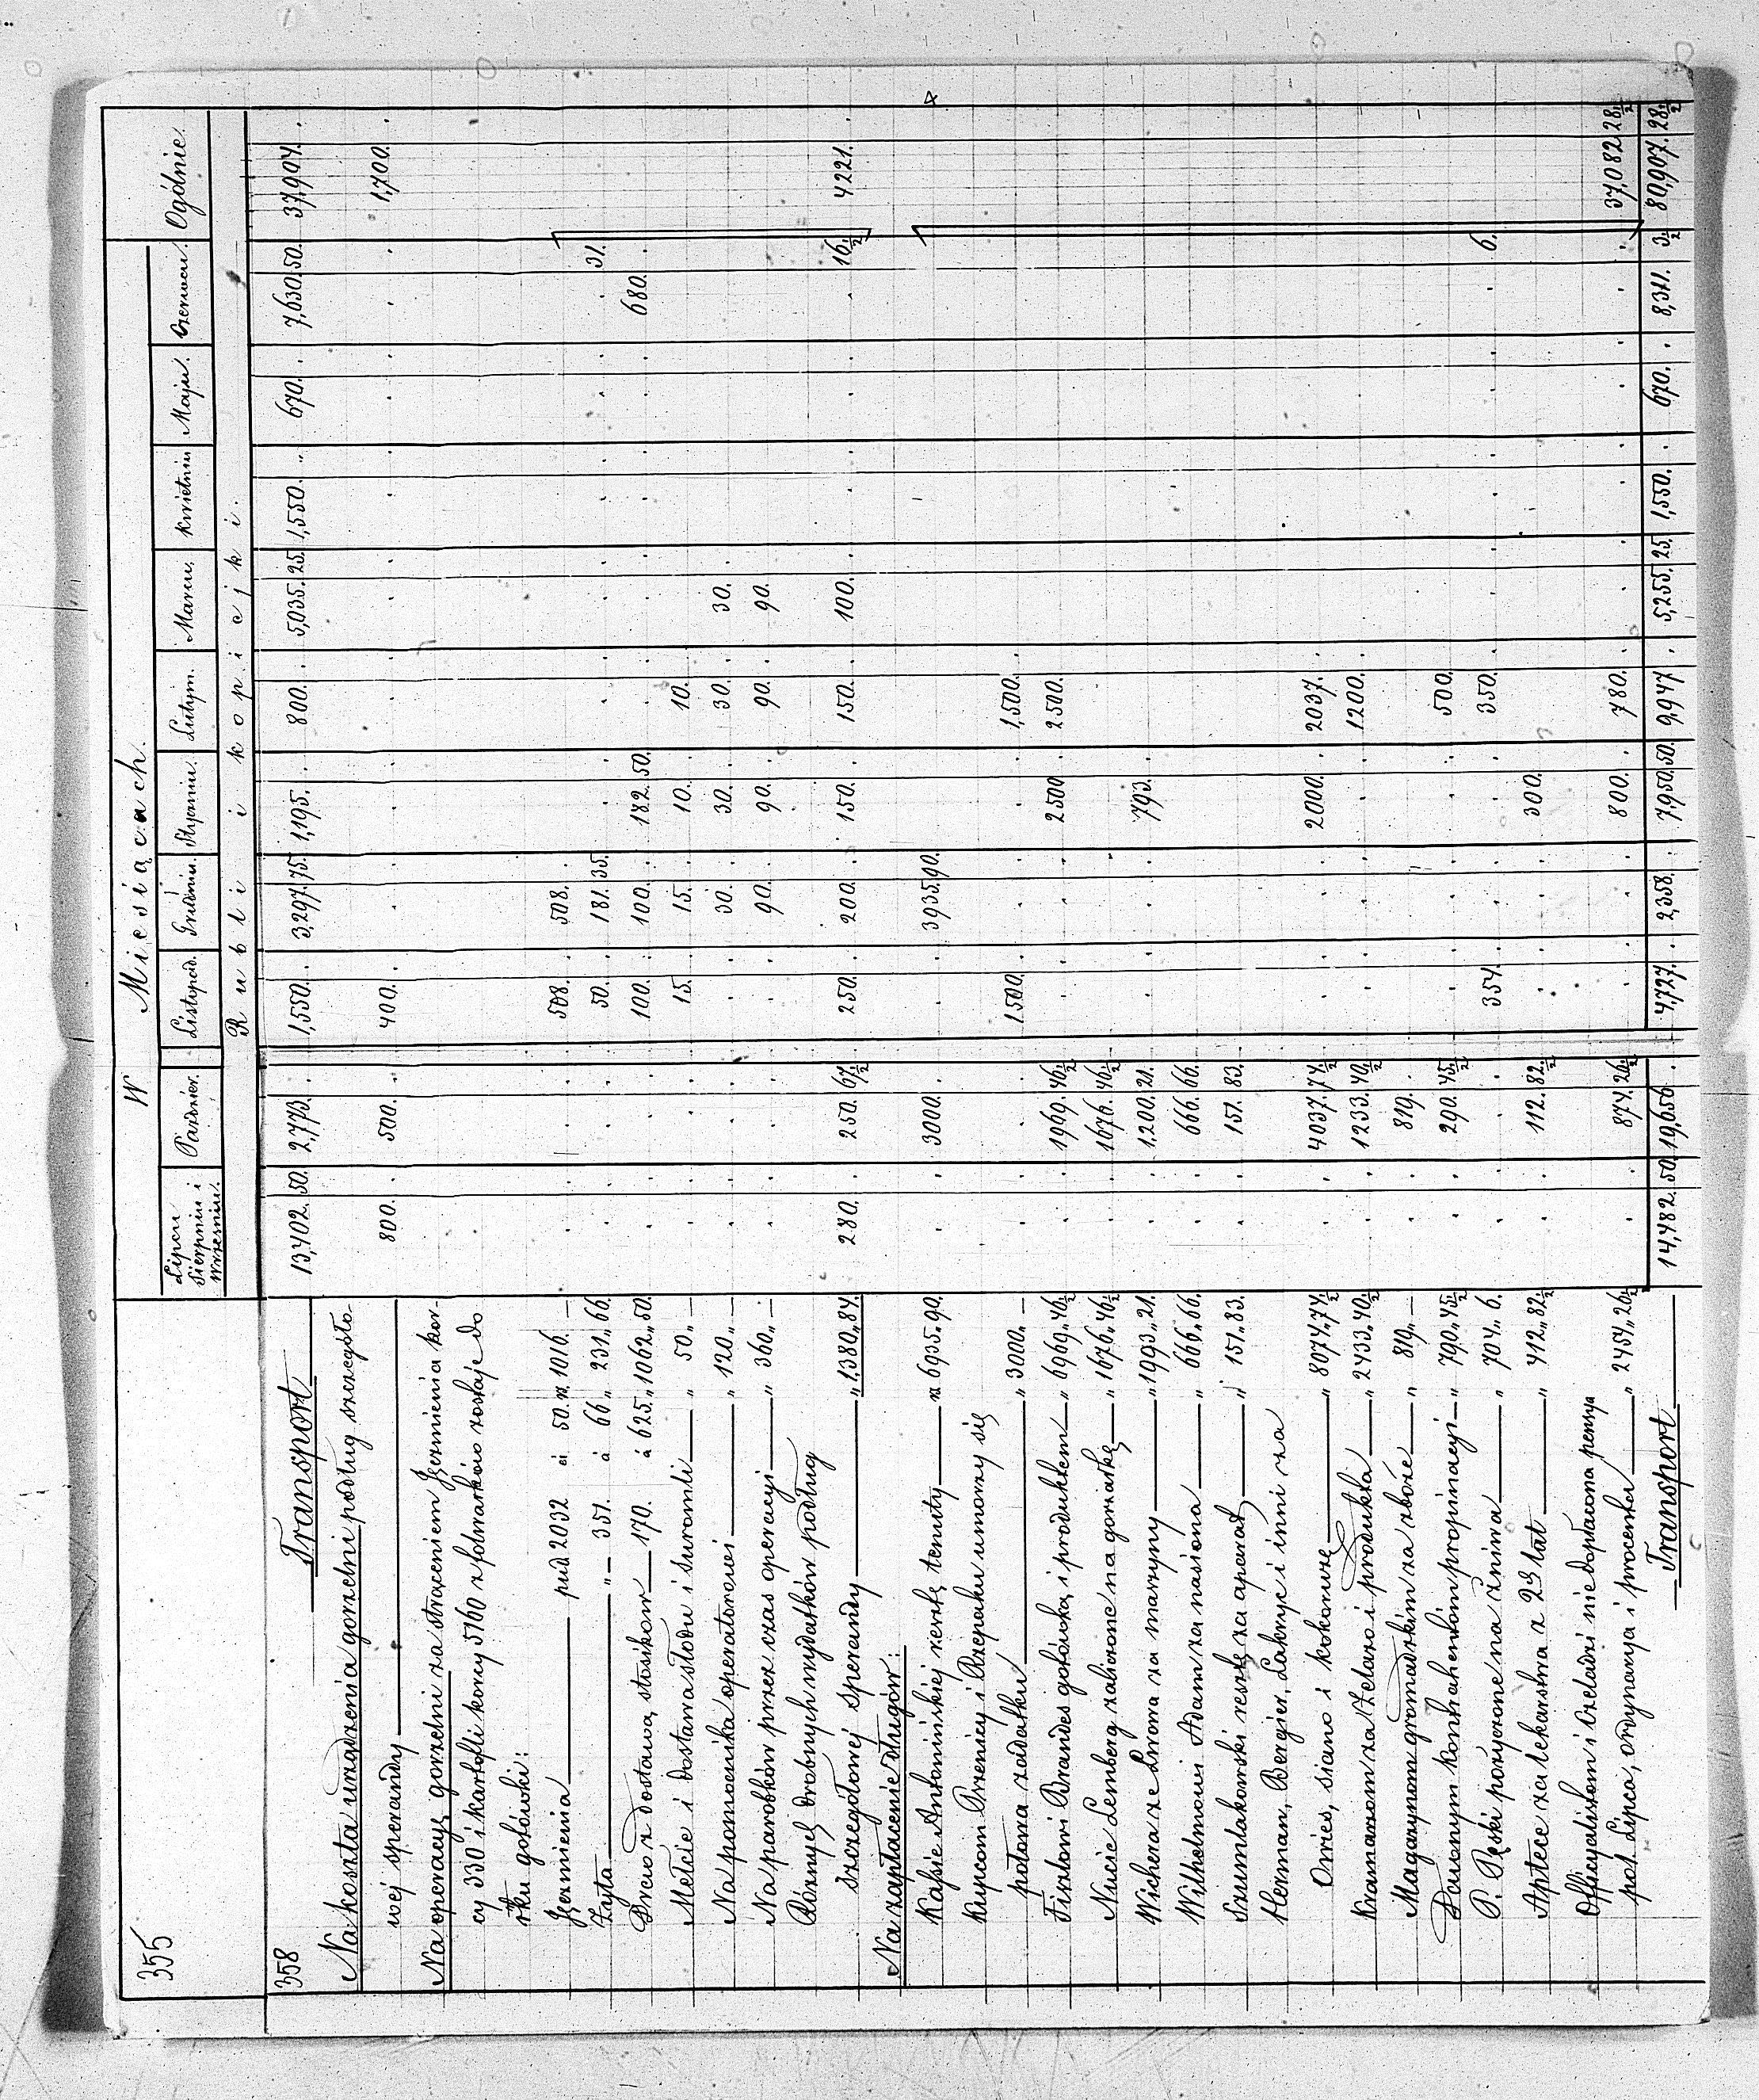 355
W Miesiącach.
Lipcu Sierpniu i Wrześniu. Paździer. Listopad. Grudniu. Styczniu. Lutym. Marcu. Kwietniu Maju. Czerwcu. Ogólnie.
Rubli i kopiejki.
358 Transport 13,402.50. 2,773. 1,550. 3,297.75. 1,195. 800. 5,035.25. 1,550. 670. 7,630.50. 37,904.
Na koszta urządzenia gorzelni podług szczegóło-
wej sperandy 800. 500. 400. 1,700.
Na operacyę gorzelni za strąceniem Jęczmienia kor-
cy 330 i kartofli korcy 5160 z folwarków zostaje do
gotówki:
Jęczmienia pud 2032 à 50. rs. 1016. — 508. 508.
Żyta „— 351. à 66 „ 231 „ 66. 50. 181.35. 31.
Drew z dostawą, stosikow 170. à 625. „ 1062 „ 50. 100. 100. 182.50. 680.
Mełcie i dostawa słodu i suromli „ 50 „ — 15. 15. 10. 10.
Na pomocnika operatorowi „ 120 „ — 30. 30. 30. 30.
Na parobków przez czas operacyi „ 360 „ — 90. 90. 90. 90.
Różnych drobnych wydatków podług
szczegółowej sperandy „ 1,380 „ 84. 280. 250. 67½ 250. 200. 150. 150. 100. 16½ 4221.
Na zapłacenie długów:
Kassie Antonińskiej resztę tenuty rs 6935 „ 90. 3000. 3935.90.
Kupcom Pszenicy i Rzepaku umorzy się
połowa zadatku „ 3000 „ — 1500. 1,500.
Brandes gotówką i produktem „ 6969 „ 46½ 1969. 46½ 2500 2500.
Nucie Lemberg zaliczone na gorzałkę „ 1676 „ 46½ 1676. 46½
Wichera ze Lwowa za maszyny „ 1993 „ 21. 1,200. 21. 793.
Wilhelmowi Adam za nasiona „ 666 „ 66. 666. 66.
Szumlakowski resztę za aparat „ 151 „ 83. 151. 83.
Herman, Bergier, Lakryc i inni za
Owies, siano i kokoruzę „ 8074 „ 74½ 4037. 74½ 2000. 2037.
Kramarzom za żelazo i produkta „ 2433 „ 40½ 1233. 40½ 1200.
Magazynom gromadzkim za zboże „ 819 „ — 819.
Dawnym kontrahentom propinacyi „ 790 „ 45½ 290. 45½ 500.
P. Pęski pożyczone na żniwa „ 704 „ 6. 354. 350. 6.
Aptece za lekarstwa z 2ch lat „ 412 „ 82½ 112. 82½ 300.
Officyalistom i Czeladzi niedopłacona pensya
pod. Lipca, ordynarya i procenta „ 2454 „ 26½ 874. 26½ 800. 780. 37,082 28½
Transport 14,482.50. 19,656. 4,727. 2,358. 7950.50. 9,947. 5,255.25. 1,550. 670. 8,311. 80,907. 28½